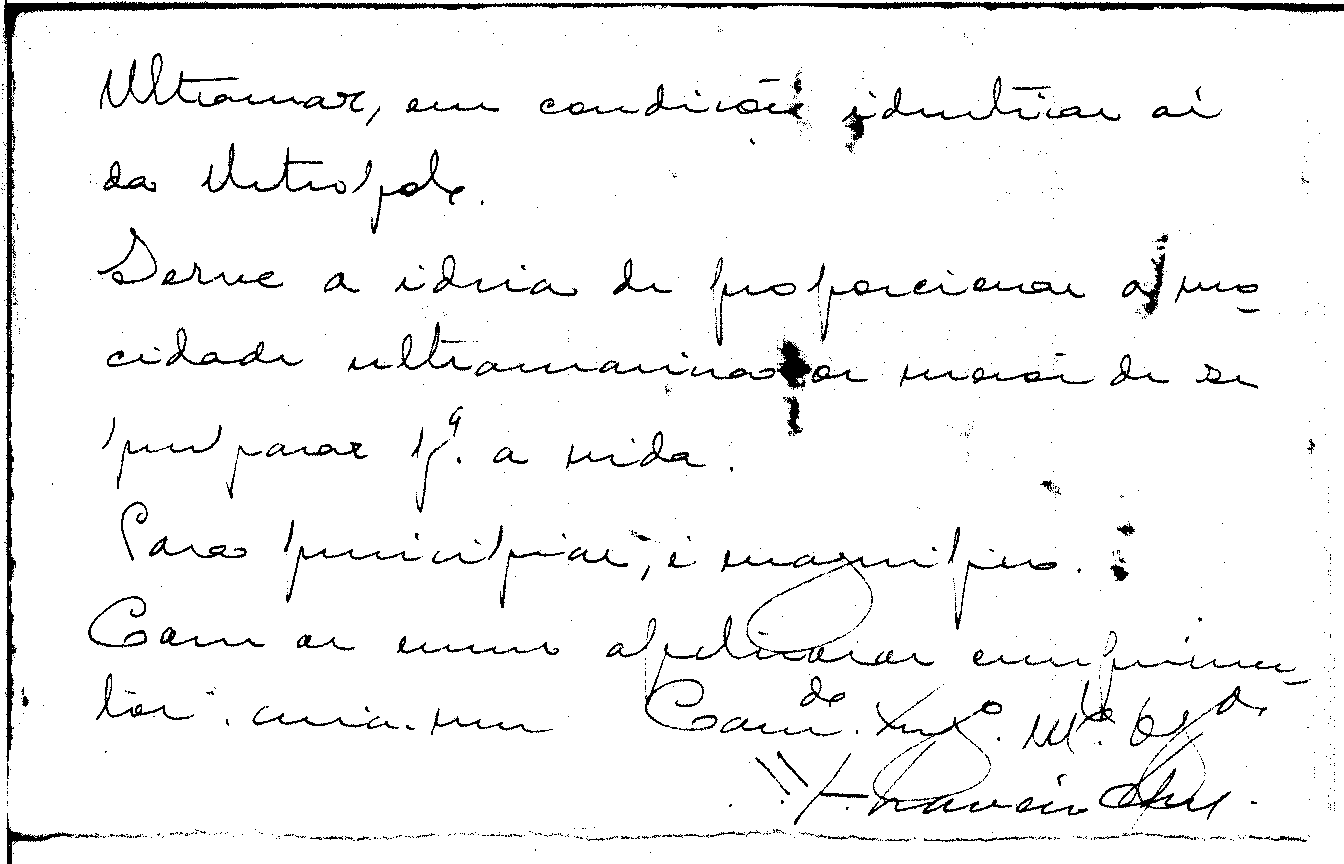 Ultramar, em condições idênticas às
da Metrópole.
Serve a ideia de proporcionar à mo-
cidade ultramarina os meios de se
preparar pª. a vida.
Para principiar, é magnífico.
Com os meus afectuosos cumprimen-
tos. creia-me Camde. Amgo. Mto. Obgdo.